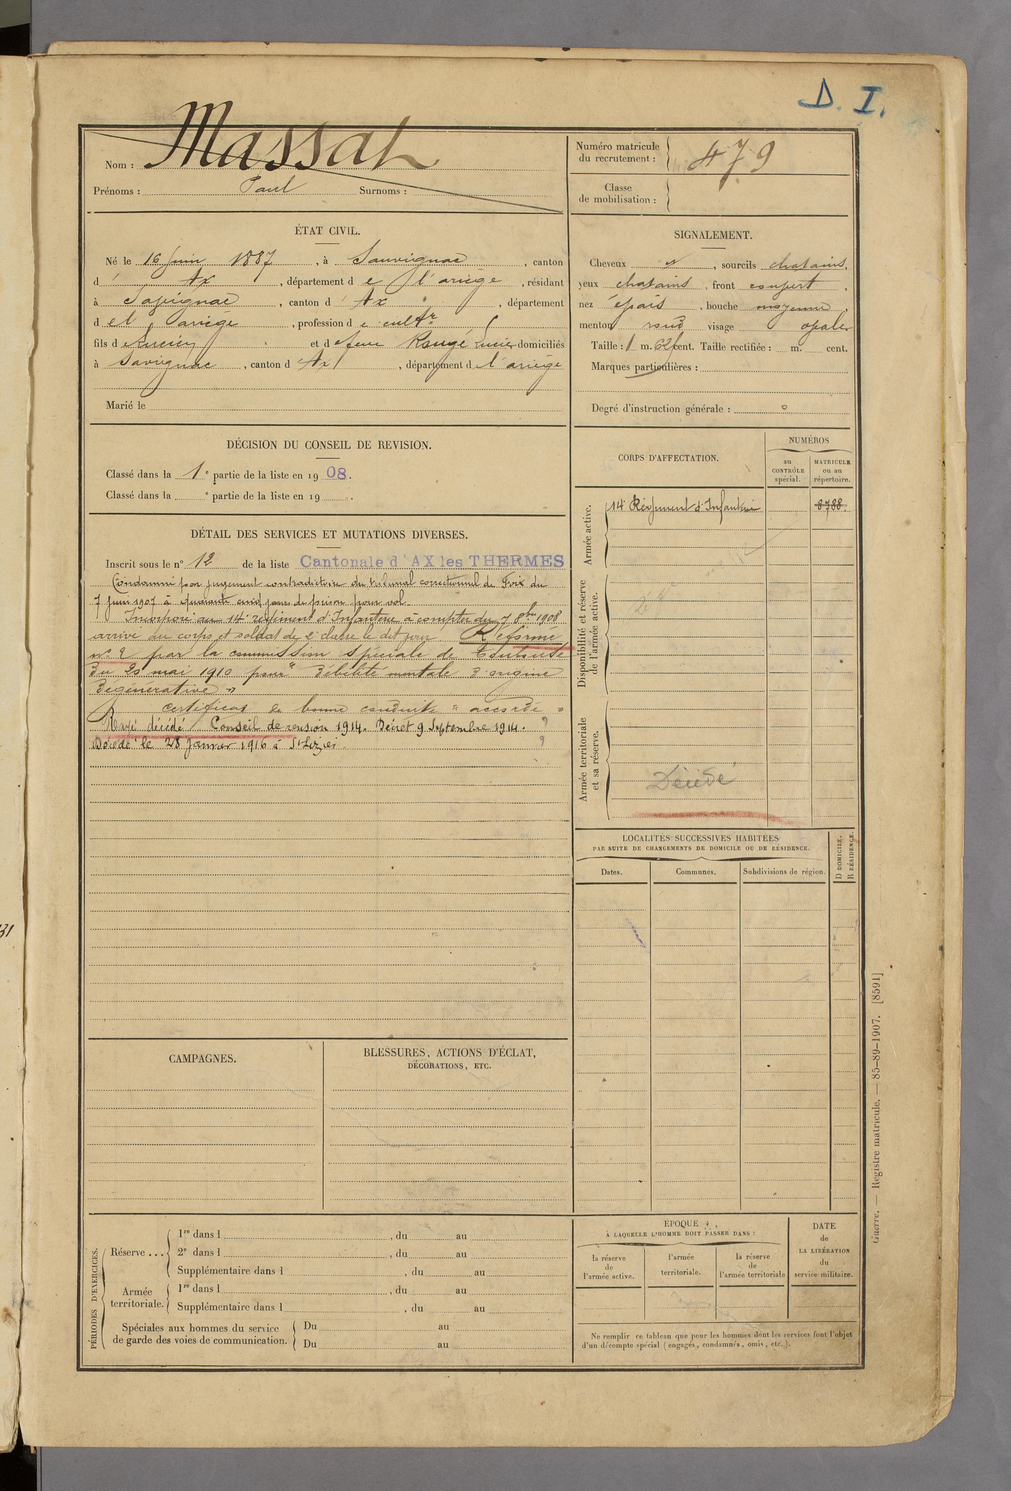 D. I.
Nom : Massat
Prénoms : Paul Surnoms :
Numéro matricule du recrutement : 479
Classe de mobilisation :
ÉTAT CIVIL.
Né le 16 juin 1887, à Sauvignac, canton
d' Ax, département de l'ariège, résidant
à Savignac, canton d' Ax, département
de l'ariège, profession de cultr
fils de et de feue Rougé Lucie domiciliés
à Savignac, canton d' Ax, département de l'ariège
Marié le
SIGNALEMENT.
Cheveux, sourcils chatains,
yeux chatains, front couvert,
nez épais, bouche moyenne,
menton rond visage ovale
Taille : 1 m. 62 cent. Taille rectifiée : m. cent.
Marques particulières :
Degré d'instruction générale : 0
DÉCISION DU CONSEIL DE REVISION.
Classé dans la 1e partie de la liste en 1908.
Classé dans la e partie de la liste en 19 .
DÉTAIL DES SERVICES ET MUTATIONS DIVERSES.
Inscrit sous le n° 12 de la liste Cantonale d'AX les THERMES
Condamné par jugement contradictoire du tribunal correctionnel de Foix du
7 juin 1907 à quarante cinq jours de prison pour vol.
Incorporé au 14e régiment d'Infanterie à compter du 7 8bre 1908
arrivé au corps et soldat de 2e classe le dit jour Réformé
n° 2 par la commission spéciale de Toulouse
du 20 mai 1910 pour "Débilité mentale d'origine
dégénérative"
certificat de bonne conduite "accordé"
Rayé décédé Conseil de revision 1914. Décret 9 Septembre 1914.
Décédé le 28 Janvier 1916 à St Lizier.
CORPS D'AFFECTATION.
NUMÉROS
au CONTRÔLE spécial.
MATRICULE ou au répertoire.
Armée active.
14e Régiment d'Infanterie 8788.
Disponibilité et réserve de l'armée active.
Armée territoriale et sa réserve.
Décédé
LOCALITÉS SUCCESSIVES HABITÉES
PAR SUITE DE CHANGEMENTS DE DOMICILE OU DE RÉSIDENCE.
Dates. Communes. Subdivisions de région. D DOMICILE. R RÉSIDENCE.
CAMPAGNES.
BLESSURES, ACTIONS D'ÉCLAT,
DÉCORATIONS, ETC.
PÉRIODES D'EXERCICES.
Réserve ...
1re dans l , du au
2e dans l , du au
Supplémentaire dans l , du au
Armée territoriale.
1re dans l , du au
Supplémentaire dans l , du au
Spéciales aux hommes du service de garde des voies de communication.
Du au
Du au
ÉPOQUE
À LAQUELLE L'HOMME DOIT PASSER DANS :
la réserve de l'armée active.
l'armée territoriale.
la réserve de l'armée territoriale
DATE de LA LIBÉRATION du service militaire.
Ne remplir ce tableau que pour les hommes dont les services font l'objet
d'un décompte spécial (engagés, condamnés, omis, etc.).
Guerre. — Registre matricule. — 85-89-1907. [8591]